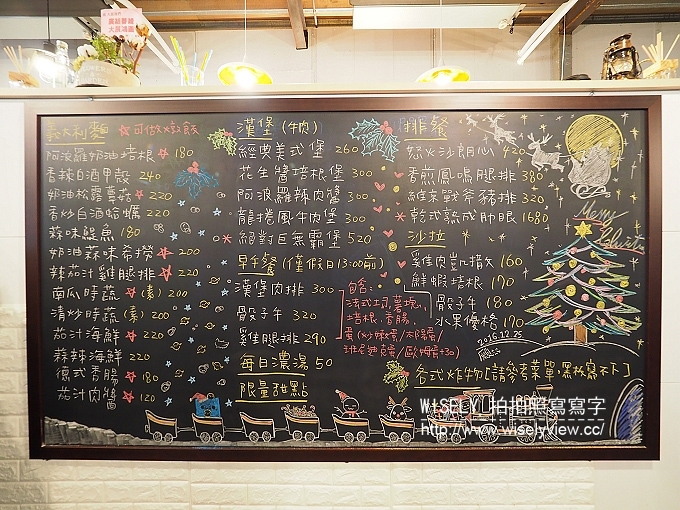 義大利麵 ☆可做燉飯
阿波羅奶油培根 180
香辣白酒甲殼 240
奶油松露蘑菇 220
香炒白酒蛤蠣 220
蒜味鯷魚 180
奶油蒜味香撈 220
辣茄汁雞腿排 220
南瓜時蔬(素) 200
清炒時蔬(素) 200
茄汁海鮮 220
蒜辣海鮮 220
德式香腸 180
茄汁肉醬 120
漢堡(牛肉)
經典美式堡 260
花生醬培根堡 300
阿波羅辣肉醬 300
龍捲風牛肉堡 300
絕對巨無霸堡 520
早午餐(僅假日13:00前)
漢堡肉排 300
骰子牛 320
雞腿排 290
每日濃湯 50
限量甜點
排餐
怒火沙朗心 420
香煎鳳鳴腿排 380
維京戰斧豬排 320
乾式熟成肋眼 1680
沙拉
雞肉凱薩 160
鮮蝦培根 170
骰子牛 180
水果優格 170
包含:
法式吐司、薯塊、
培根、香腸、
2016.12.25
各式炸物[請參考菜單,黑板寫不下]
Merry
Christmas
WISELY 拍拍照寫寫字
http://www.wiselyview.cc/